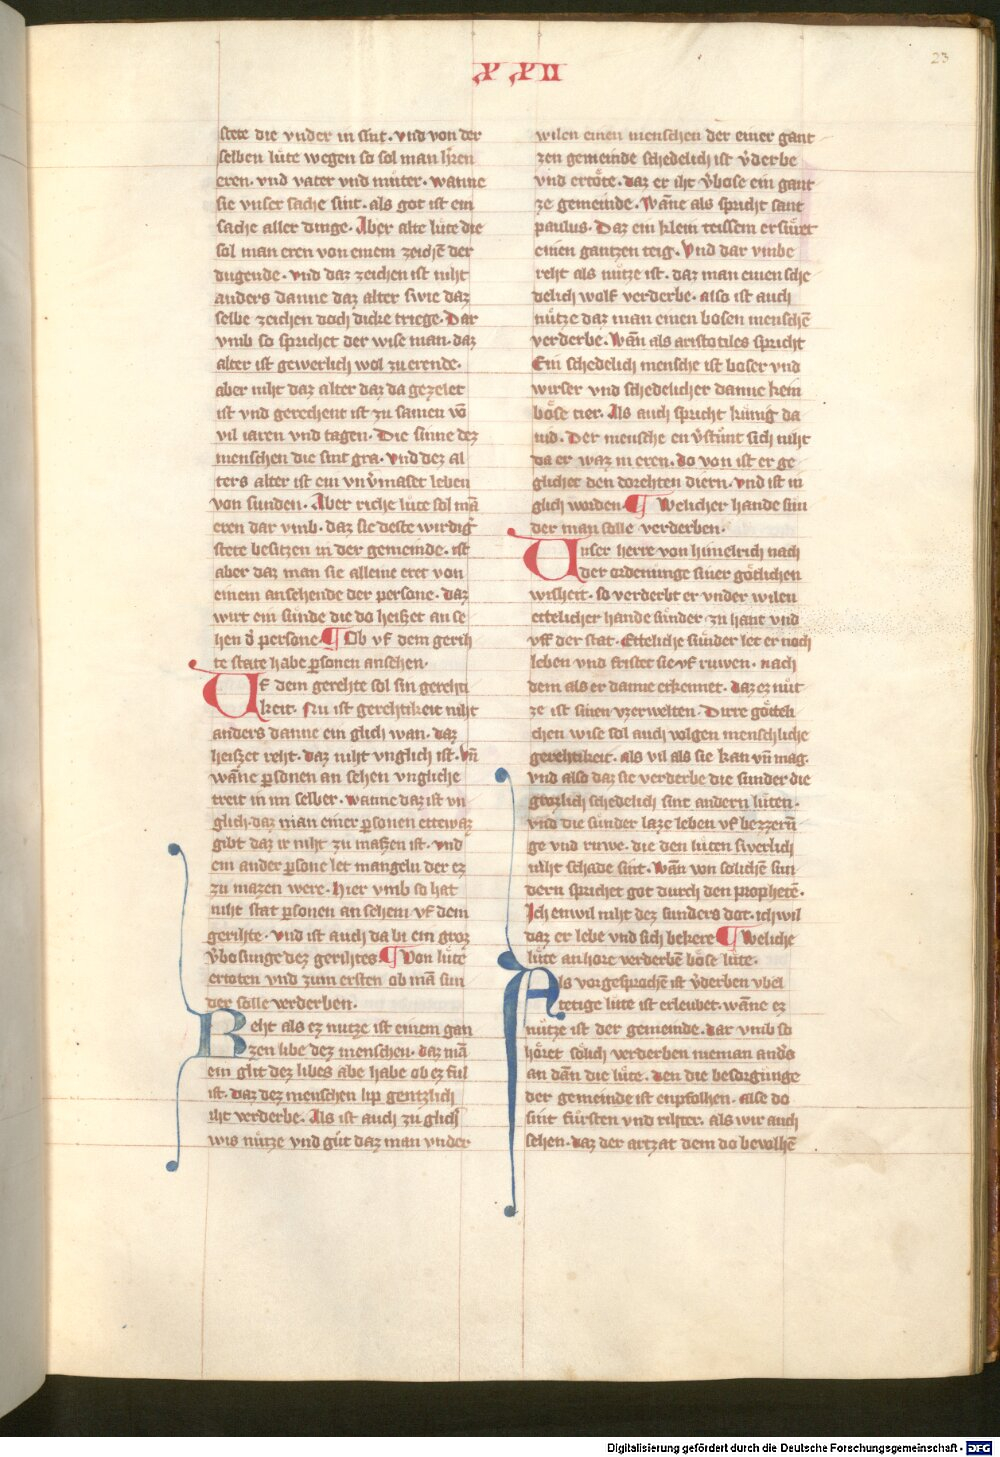 XXII
23
stete die vnder in sint. vnd von der
selben lute wegen so sol man hren
eren. vnd vater vnd muter. wanne
sie vnser sache sint. als got ist ein
sache aller dinge. Aber alte lute die
sol man eren von einem zeichē der
dugende. vnd daz zeichen ist niht
anders danne daz alter swie daz
selbe zeichen doch dicke triege. Dar
vmb so sprichet der wise man. daz
alter ist gewerlich wol zu erende.
aber niht daz alter daz da gezelet
ist vnd gerechent ist zu samen vō
vil iaren vnd tagen. Die sinne dez
menschen die sint gra. vnd dez al
ters alter ist ein vnv̄maset leben
von sunden. Aber riche lute sol mā
eren dar vmb. daz sie deste wirdiḡ
stete besitzen in der gemeinde. ist
aber daz man sie alleine eret von
einem ansehende der persone. daz
wirt ein sunde die do heiszet an se
hen d̄ persone ¶ Ob vf dem gerih
te state habe psonen ansehen.
Uf dem gerehte sol sin gerehti
keit. Nu ist gerehtikeit niht
anders danne ein glich wan. daz
heiszet reht. daz niht vnglich ist. vn̄
wāne psonen an sehen vngliche
treit in im selber. wanne daz ist vn
glich. daz man einer psonen ettewaz
gibt daz ir niht zu maszen ist. vnd
ein ander psone let mangeln der ez
zu mazen were. Hier vmb so hat
niht stat psonen an sehen vf dem
gerihte. vnd ist auch da bi ein groz
v̄bosunge dez gerihtes ¶ Von lute
ertoten vnd zum ersten ob mā sun
der solle verderben.
Reht als ez nutze ist einem gan
zen libe dez menschen. daz mā
ein glit dez libes abe habe ob ez ful
ist. daz dez menschen lip gentzlich
iht verderbe. Als ist auch zu glich̄
wis nutze vnd gut daz man vnder
wilen einen menschen der einer gant
zen gemeinde schedelich ist v̄derbe
vnd ertote. daz er iht v̄bose ein gant
ze gemeinde. Wāne als spricht sant
paulus. Daz ein klein teissem ersuret
einen gantzen teig. Vnd dar vmbe
reht als nutze ist. daz man einen sche
delich wolf verderbe. also ist auch
nutze daz man einen bosen menschē
verderbe. Wān als aristotiles spricht
Ein schedelich mensche ist boser vnd
wirser vnd schedelicher danne kein
bose tier. Als auch spricht kunig da
uid. Der mensche en v̄stunt sich niht
da er waz in eren. do von ist er ge
glichet den dorehten diern. vnd ist in
glich worden ¶ Welicher hande sun
der man solle verderben.
Unser herre von himelrich nach
der ordenunge siner gotlichen
wisheit. so verderbt er vnder wilen
ettelicher hande sunder zu hant vnd
vff der stat. Etteliche sunder let er noch
leben vnd fristet sie vf ruwen. nach
dem als er danne erkennet. daz ez nut
ze ist sinen vzerwelten. Dirre gotteli
chen wise sol auch volgen menschliche
gerehtikeit. als vil als sie kan vn̄ mag.
vnd also daz sie verderbe die sunder die
grozlich schedelich sint andern luten.
vnd die sunder laze leben vf bezzerū
ge vnd ruwe. die den luten swerlich
niht schade sint. Wān von solichē sun
dern sprichet got durch den prophetē.
Ich enwil niht dez sunders dot. ich wil
daz er lebe vnd sich bekere ¶ Weliche
lute an hore verderbē bose lute.
Als vorgesprochē ist v̄derben vbel
tetige lute ist erleubet. wāne ez
nutze ist der gemeinde. dar vmb so
horet solich verderben nieman and̄s
an dān die lute. den die besorgunge
der gemeinde ist enpfolhen. alse do
sint fursten vnd rihter. als wir auch
sehen. daz der artzat dem do bevolhē
Digitalisierung gefördert durch die Deutsche Forschungsgemeinschaft - DFG